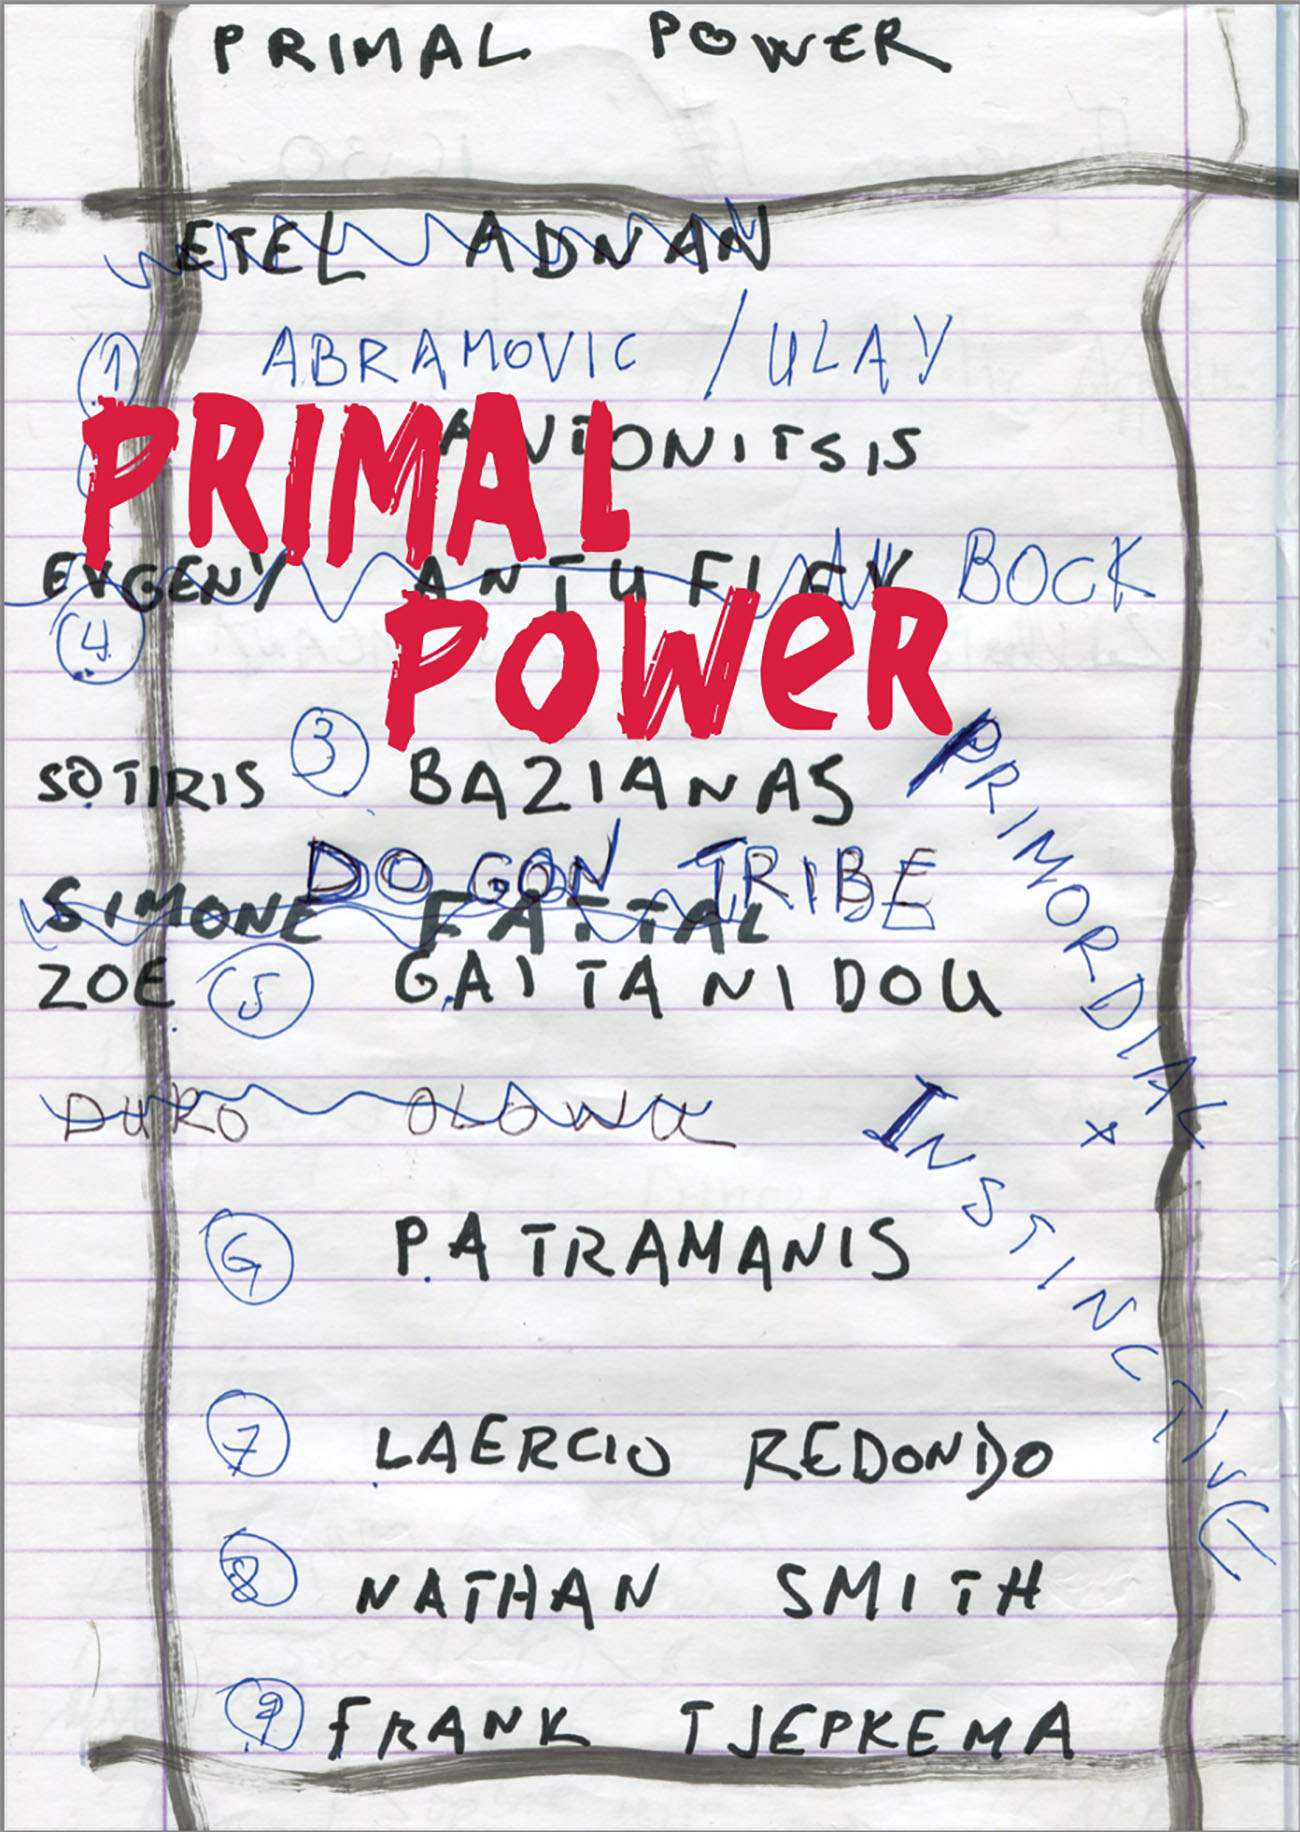 PRIMAL POWER
ETEL ADNAN
1 ABRAMOVIC / ULAY
ANTONITSIS
PRIMAL
EVGENY ANTUFIEV BOCK
4
POWeR
SOTIRIS 3 BAZIANAS
DOGON TRIBE
SIMONE FATTAL
ZOE 5 GAITANIDOU
PRIMORDIAL
x
DURO OLOWU
INSTINCTIVE
6 PATRAMANIS
7 LAERCIO REDONDO
8 NATHAN SMITH
9 FRANK TJEPKEMA